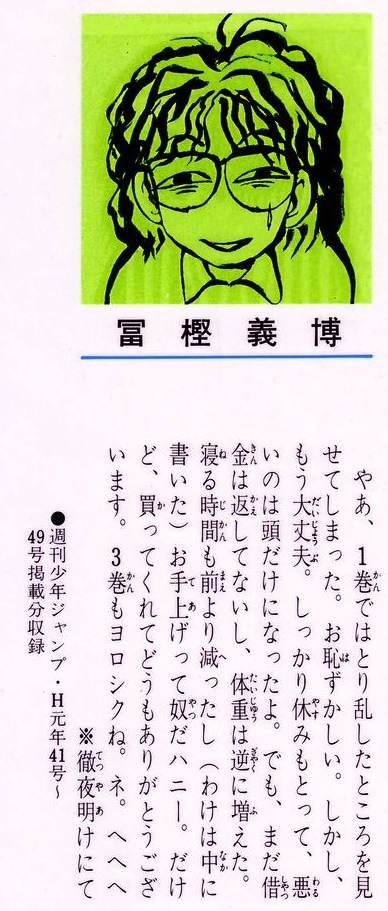 冨樫義博
やあ、1巻ではとり乱したところを見
せてしまった。お恥ずかしい。しかし、
もう大丈夫。しっかり休みもとって、悪
いのは頭だけになったよ。でも、まだ借
金は返してないし、体重は逆に増えた。
寝る時間も前より減ったし（わけは中に
書いた）お手上げって奴だハニー。だけ
ど、買ってくれてどうもありがとうござ
います。3巻もヨロシクね。ネ。へへへ
※徹夜明けにて
●週刊少年ジャンプ・H元年41号～
49号掲載分収録